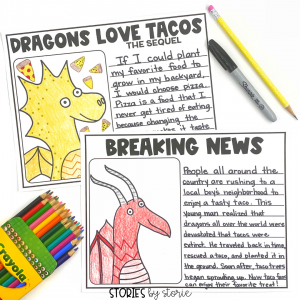 DRAGONS LOVE TACOS
THE SEQUEL
If I could plant
my favorite food to
grow in my backyard,
I would choose pizza.
Pizza is a food that I
never get tired of eating
because changing the
makes it taste
BREAKING NEWS
People all around the
country are rushing to a
local boy's neighborhood to
enjoy a tasty taco. This
young man realized that
dragons all over the world were
devastated that tacos were
extinct. He traveled back in time,
rescued a taco, and planted it in
the ground. Soon after, taco trees
began sprouting up. Now
can enjoy their favorite treat!
Crayola
Sharpie
STORIES by storie